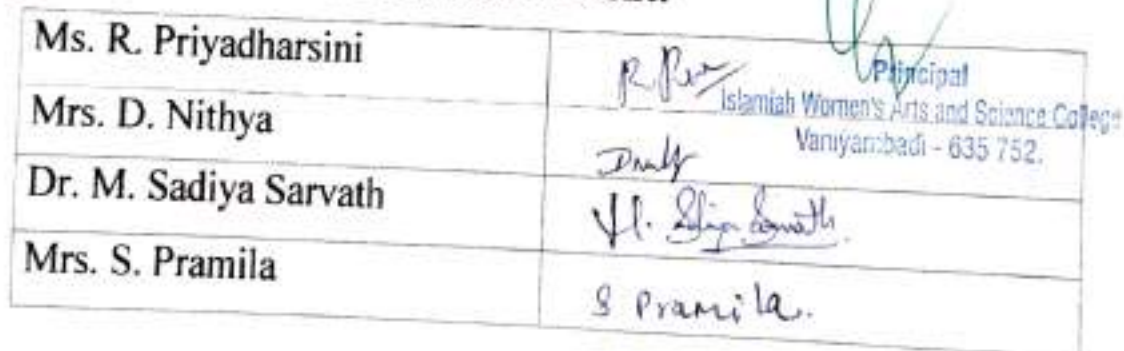 Ms. R. Priyadharsini
Principal
Islamiah Women's Arts and Science College
Vaniyambadi - 635 752.
Mrs. D. Nithya
Dr. M. Sadiya Sarvath
M. Sadiya Sarvath.
Mrs. S. Pramila
S Pramila.